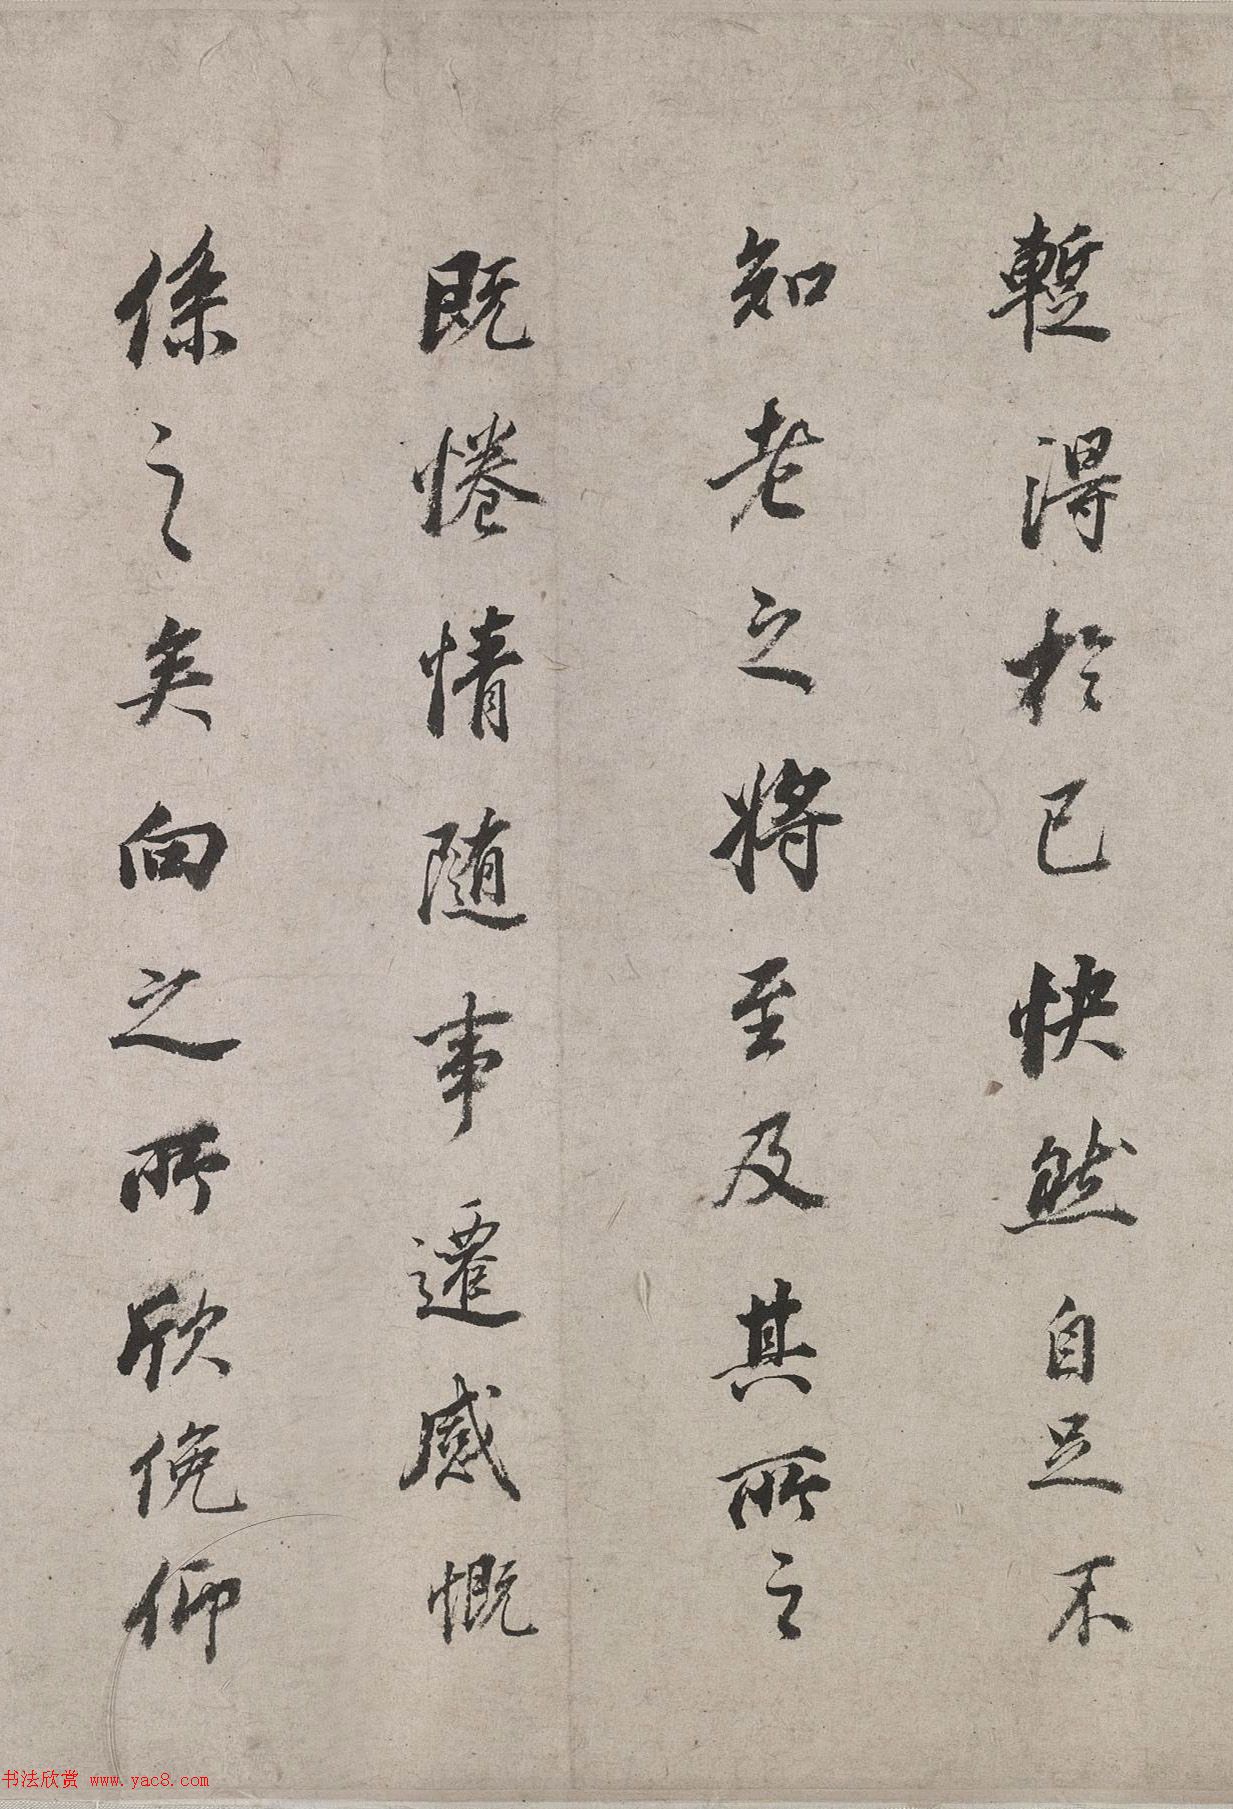 暫得於己快然自足不
知老之將至及其所之
既惓情隨事遷感慨
係之矣向之所欣俛仰
书法欣赏 www.yac8.com